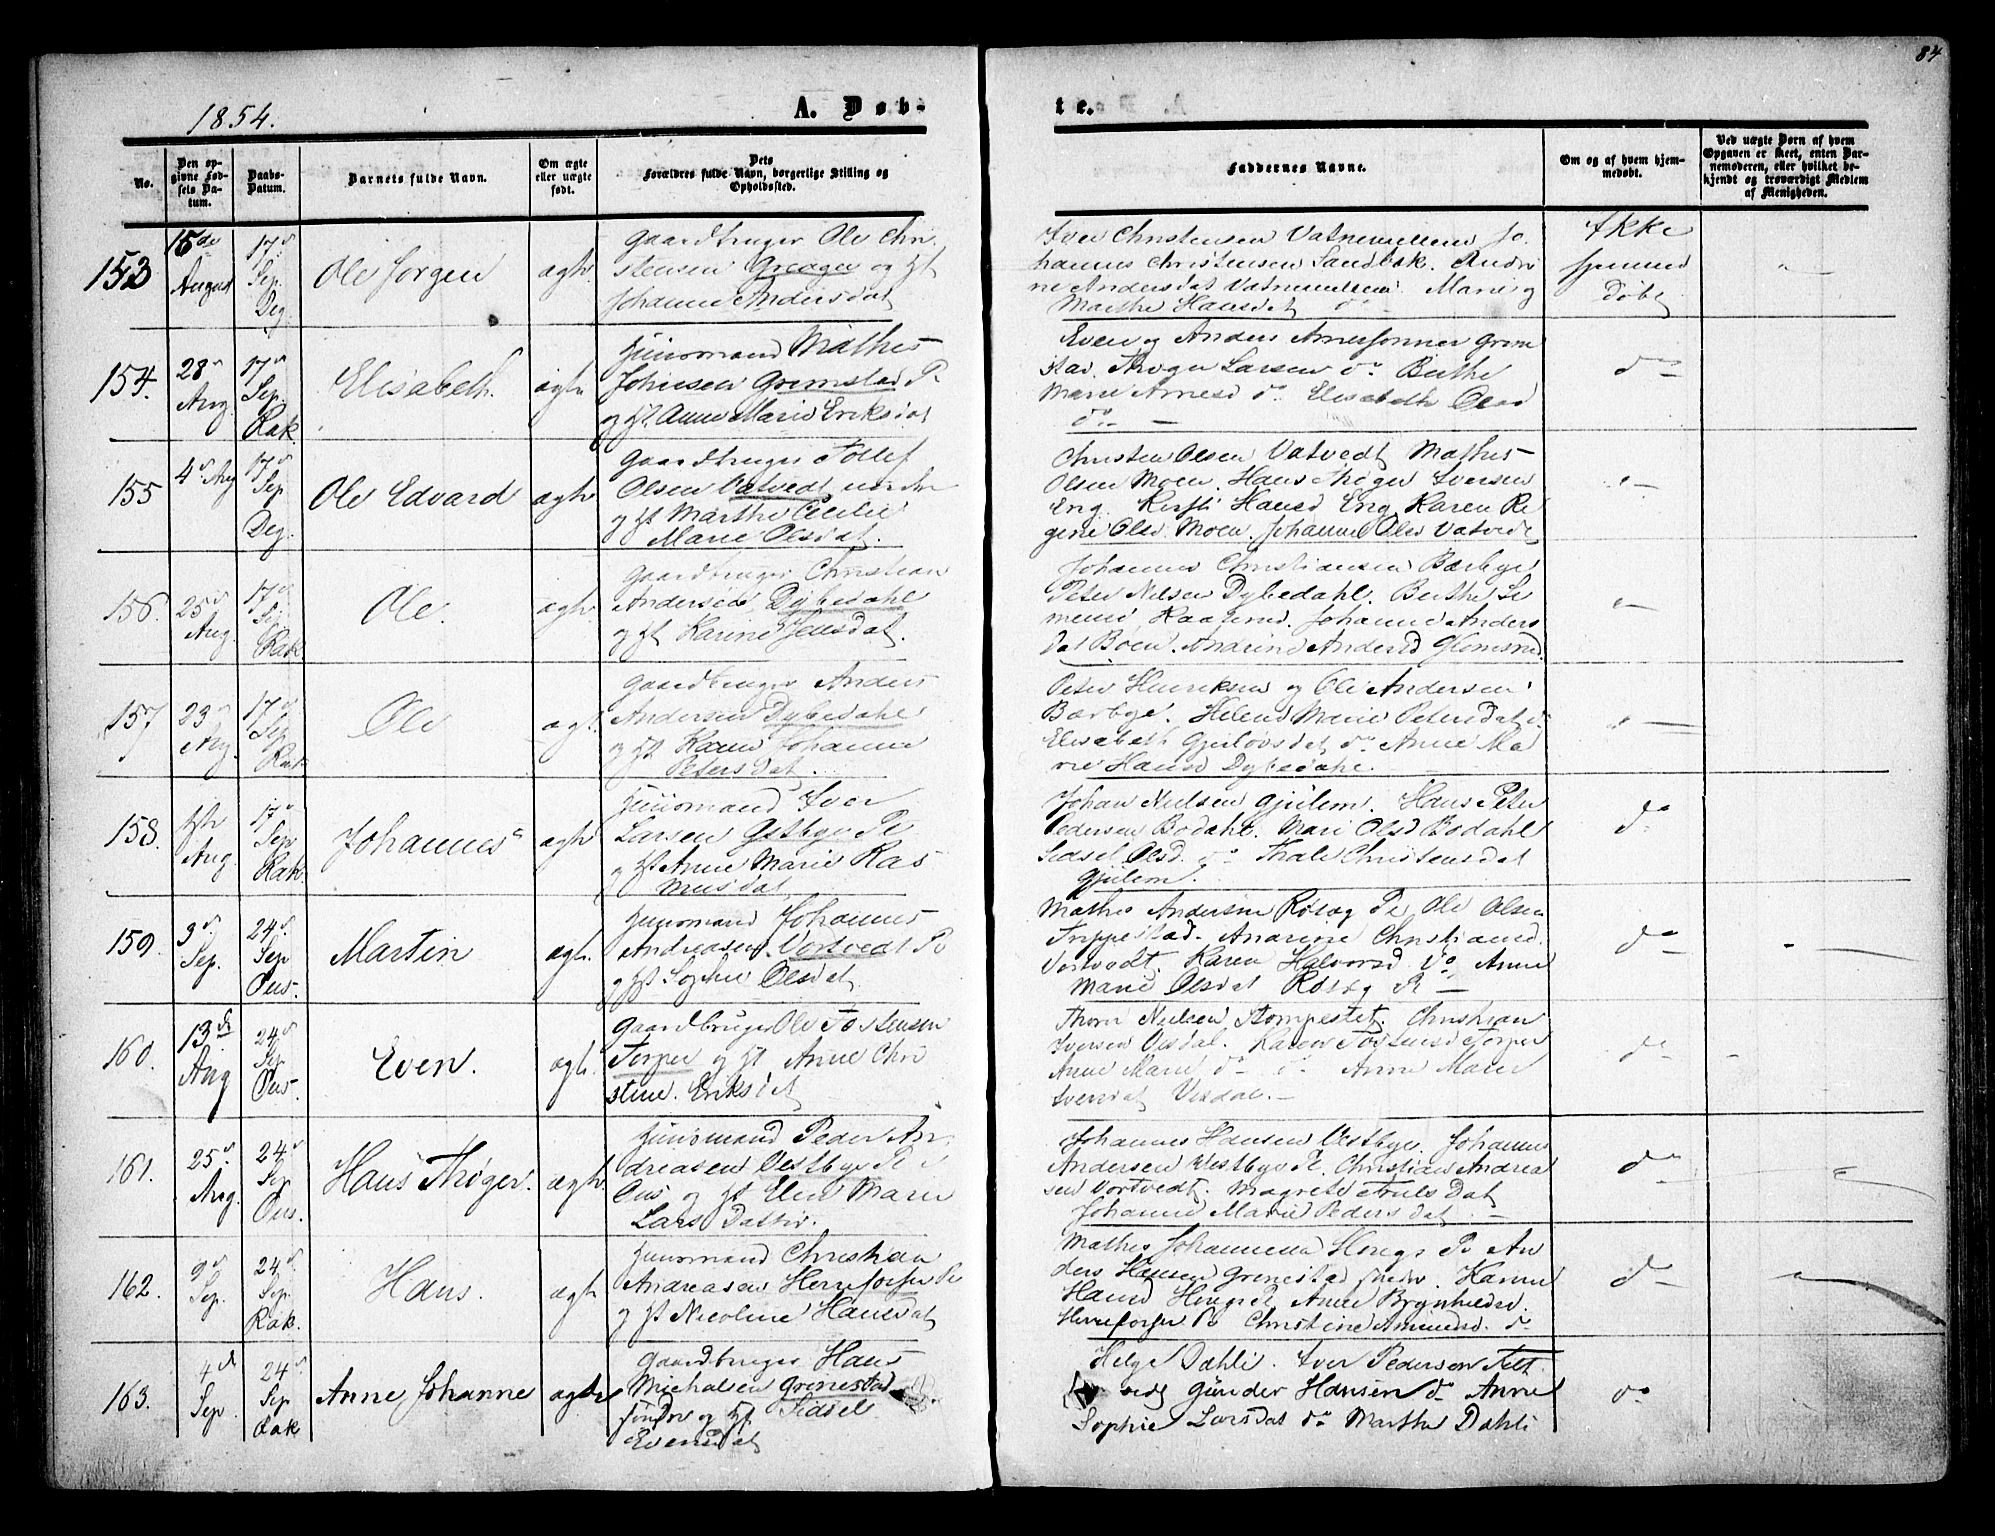 84
1854.
A. Døb-
te.
No.
Den op-
givne Fød-
sels Da-
tum.
Daabs-
Datum.
Barnets fulde Navn.
Om ægte
eller uægte
født.
Dets
Forældres fulde Navn, borgerlige Stilling og
Opholdssted.
Faddernes Navne.
Om og af hvem hjem-
medøbt.
Ved uægte Børn af hvem
Opgaven er skeet, enten Bar-
nemoderen, eller hvilket be-
kjendt og troværdigt Medlem
af Menigheden.
153
15de
August
17d
Sep.
Deg.
Ole Jørgen
ægte
Gaardbruger Ole Chri
stensen Grenager og Hst
Johanne Andersdat
Iver Christensen Vatnemellem Jo
hannes Christensen Sandbæk. Andri
ne Andersdat Vatnemellem Marie og
Marthe Hansdat do
Ikke
hjemme
døbt
154.
28d
Aug.
17d
Sep.
Rak.
Elisabeth.
ægte
Huusmand Mathes
Johnsen Grimstad Pl
og Hst. Anne Marie Eriksdat
Even og Anders Arnesønner Grim
stad. Thøger Larsen do Berthe
Marie Arnesd do. Elisabeth Olsd
do. —
do —
155
4d Aug
17d
Sep
Deg.
Ole Edvard
ægte
Gaardbruger Tollef
Olsen Vatvedt nordre
og Hst Marthe Cecilie
Marie Olsdat.
Christen Olsen Vatvedt Mathes
Olsen Moen. Hans Thøger Iversen
Eng. Kirsti Hansd Eng. Karen Re
gine Olsd Moen. Johanne Olsd Vatvedt
156.
25d
Aug.
17d
Sep.
Rak
Ole.
ægte
Gaardbruger Christian
Andersen Dybedahl
og Hst Karine Jensdat.
Johannes Christiansen Bærbye
Peter Nilsen Dybedahl. Berthe Si
mensd, Kaagerud. Johanne Anders
dat Boen. Andrine Andersd Glomsrud.
157
23d
Aug.
17d
Sep
Rak
Ole
ægt.
Gaardbruger Anders
Andersen Dybedahl
og Hst Karen Johanne
Petersdat.
Peter Henriksen og Ole Andersen
Bærbye. Helene Marie Petersdat do
Elisabeth Gjulovsdat do Anne Ma
rie Hansd Dybedahl.
158.
Aug.
17d
Sep
Rak.
Johannes
ægte
Huusmand Iver
Larsen Østbye Pl
og Hst Anne Marie Ras
musdat
Johan Nielsen Gjulem. Hans Peter
Pedersen Bodahl. Mari Olsd Bodahl
Sidsel Olsd. do Thale Christensdat
Gjulem.
do
159.
3d.
Sep.
24d.
Sep
Øus.
Martin
ægt.
Huusmand Johannes
Andreasen Vortvedt Pl
og Hst Sophie Olsdat
Mathes Andersen Røsæg Pl Ole Olsen
Trippestad. Andrine Christiansd.
Vortvedt. Karen Halvorsd do Anne
Marie Olsdat Røsæg Pl —
do —
160.
13de
Aug
24d
Sep
Øus.
Even.
ægt.
Gaardbruger Ole Tostensen
Torper og Hst Anne Chri
stine. Eriksdat
Thorer Nielsen Stompestet. Christian
Iversen Visdal. Karen Tostensd Torper
Anne Marie do do Anne Marie
Iversdat Visdal. —
do —
161.
25d.
Aug.
24d
Sep
Øus.
Hans Thøger.
ægte
Huusmand Peder An
dreasen Vestbye Pl i
Øus og Hst Elen Marie
Lars Datter.
Johannes Hansen Vestbye. Johannes
Andersen Westbye Pl. Christian Andrea
sen Vortvedt. Magrete Truls Dat
Johanne Marie Peders dat. —
do —
162.
9d
Sep.
24d
Sep.
Rak.
Hans.
ægt
Huusmand Christian
Andreasen Herreforser Pl
og Hst Nicoline Hansdat
Mathes Johannesen Haugs Pl An
ders Hansen Grenestad søndre. Karine
Hansd Haugs Pl Anne Brynhildsd.
Herreforser Pl Christine Amundsd. do
do —
163.
4d
Sep
24d
Sep
Rak
Anne Johanne
ægte
Gaardbruger Hans
Michalsen Grenestad
søndre og Hst Sidsel
Evensdat
Helge Dæhli. Iver Pedersen Tvet
vedt Gunder Hansen do Anne
Sophie Larsdat do Marthe Dæhli
do